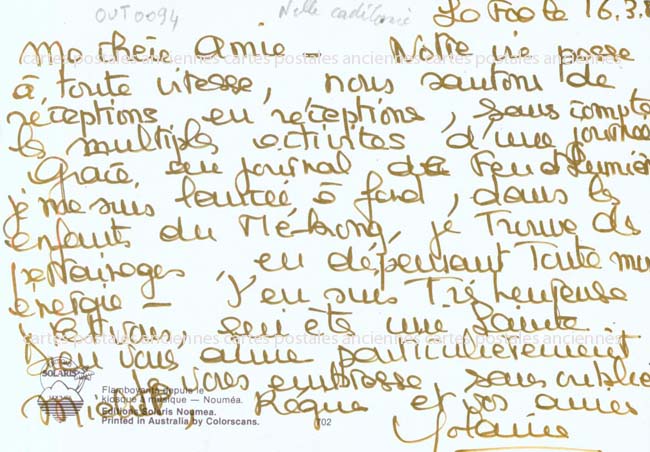 OUT0094 Nelle calédonie La Foa le 16.3.8
Ma chère Amie - Notre vie passe
cartes postales anciennes cartes postales anciennes cartes postales anciennes
à toute vitesse, nous sautons de
réceptions en réceptions, sans compte
les multiples activités d'une journée
Grâce au journal de
je me suis lancée à fond, dans les
enfants du Mé-kong, je trouve des
parrainages en dépensant toute mon
énergie - J'en suis Très heureuse
cartes postales anciennes cartes postales anciennes cartes postales anciennes
été une Sainte
vous aime particulièrement
SOLARIS
vous embrasse, sans oublie
Flamboyants depuis le
kiosque à musique — Nouméa.
Régine et vos amies
Editions Solaris Noumea.
Printed in Australia by Colorscans. 702